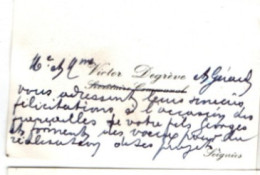 Mr & Mme Victor Degrève & Gérard
Secrétaire Communal
vous adressent leurs sincères
félicitations à l'occasion des
fiançailles de votre fils Georges
et forment des voeux pour la
réalisation de ses projets
Soignies